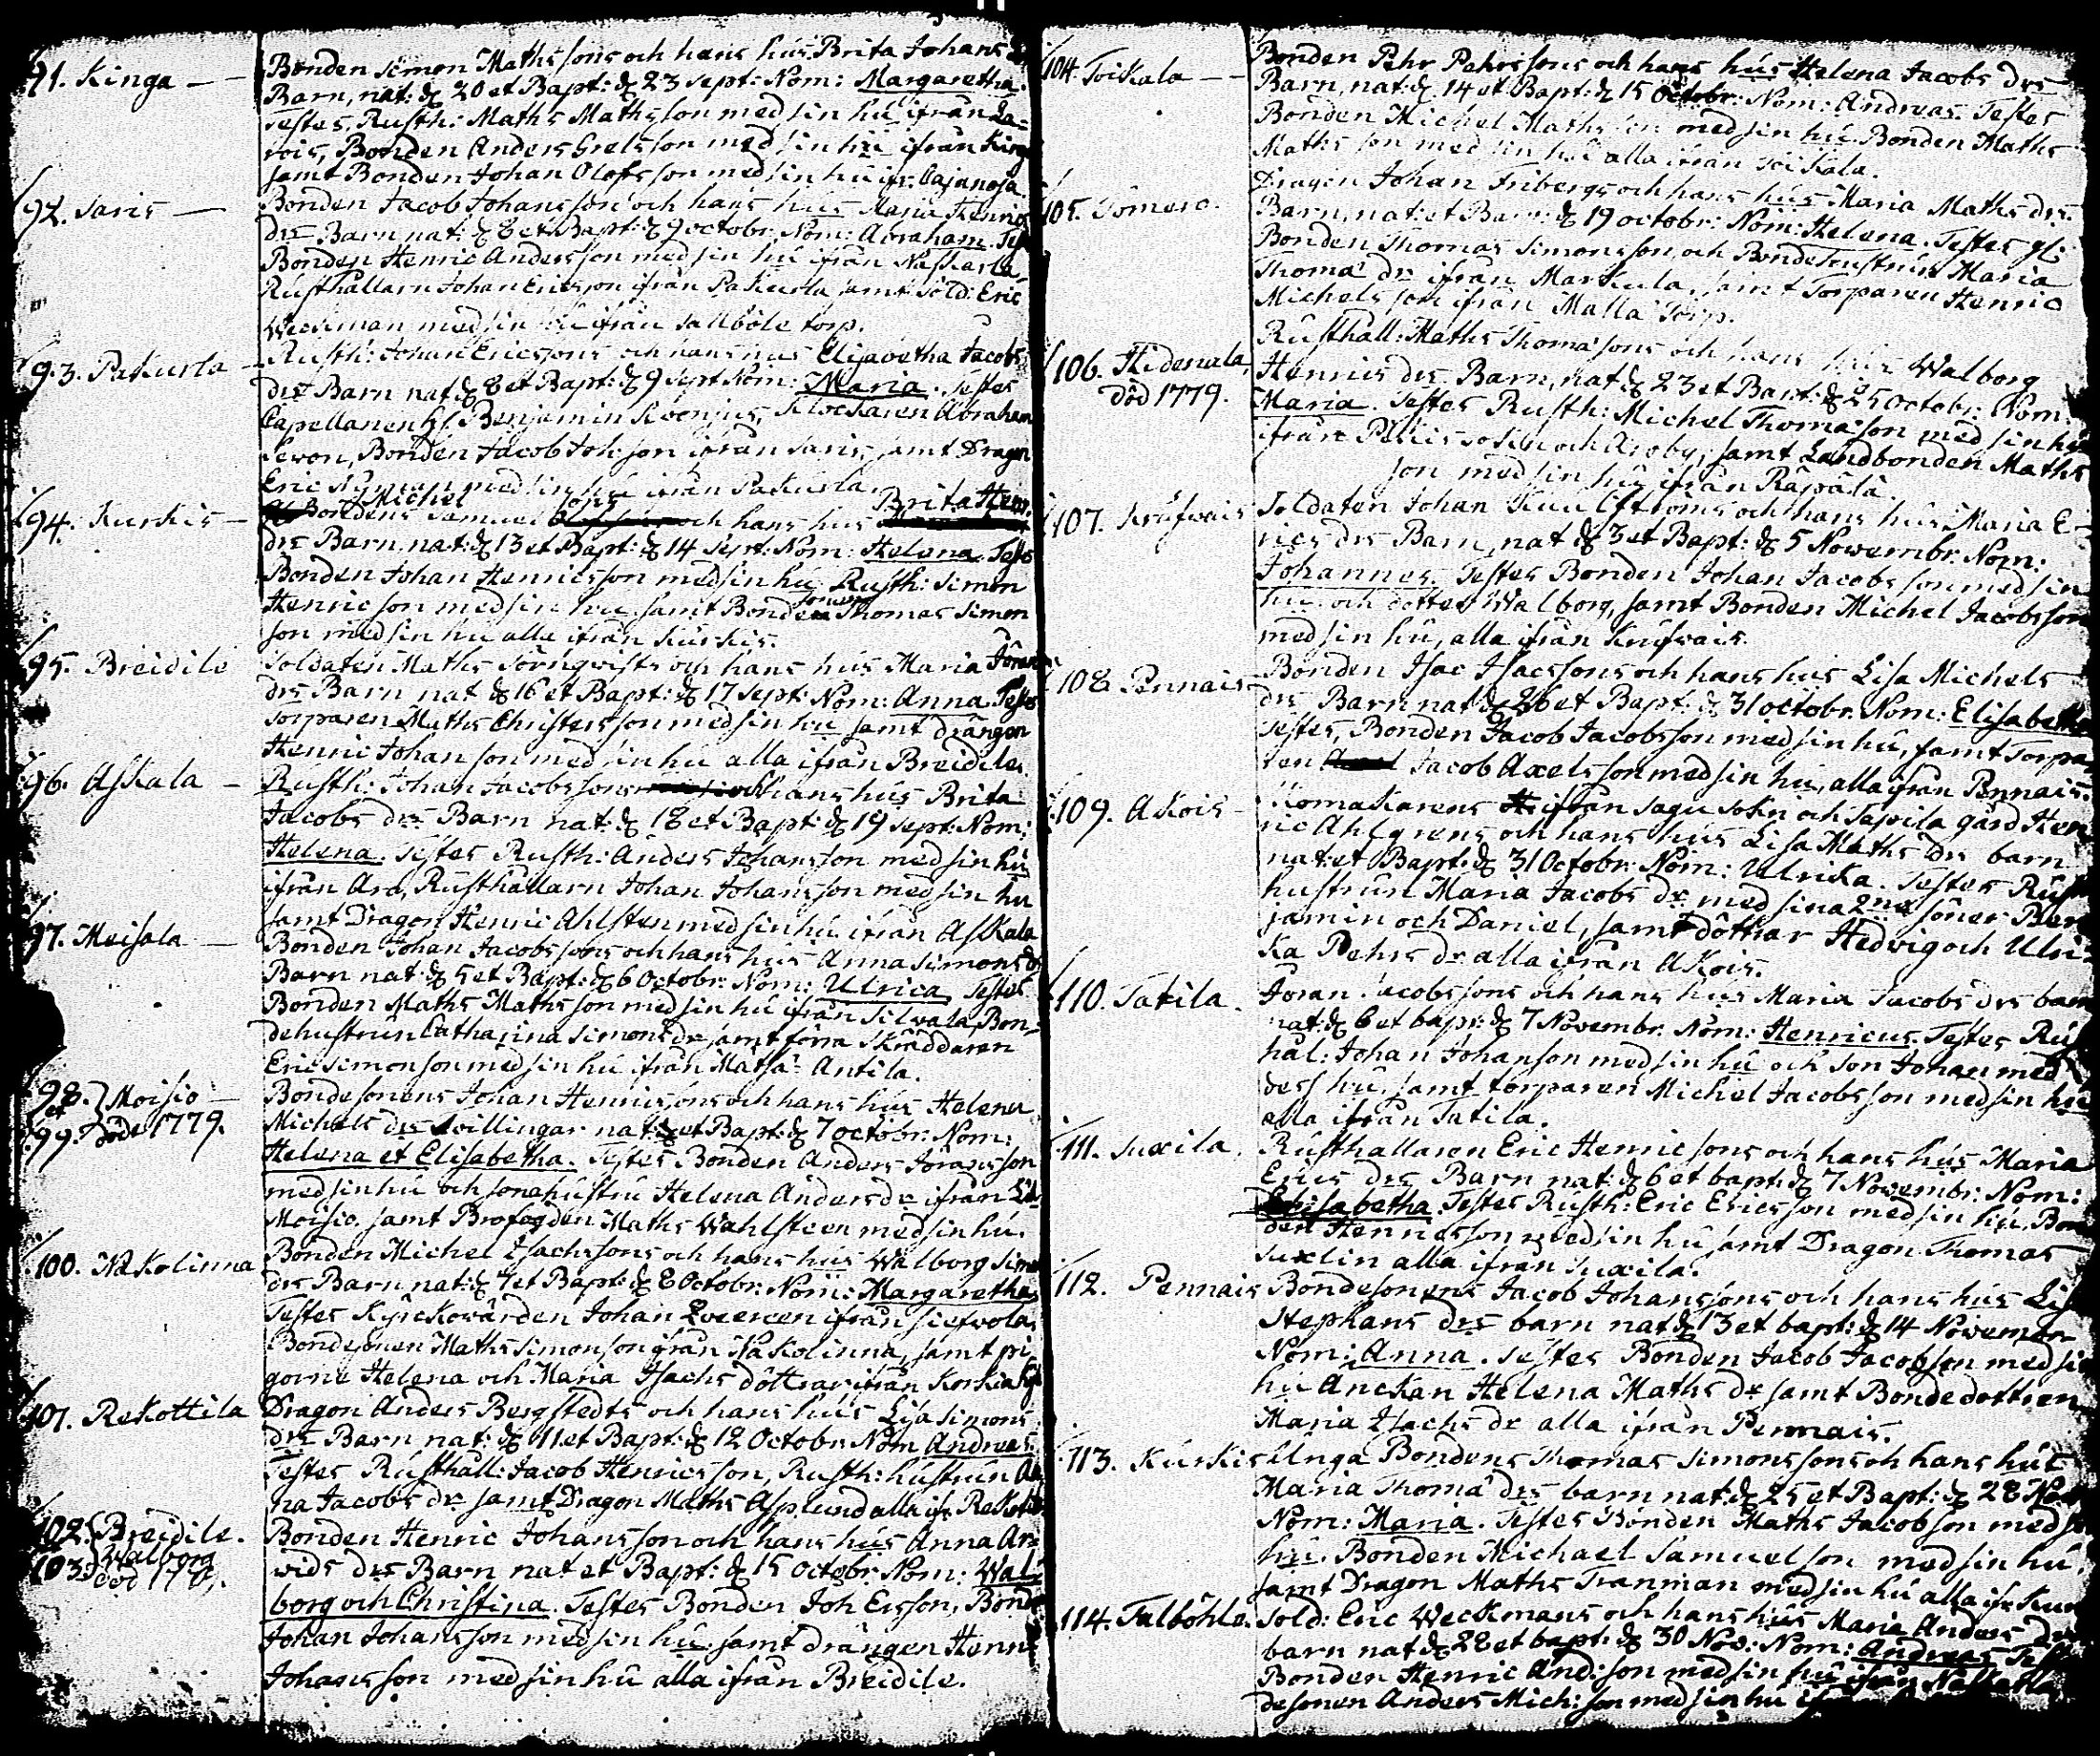 91. Kinga — Bonden Simon Mathssons och hans hus: Brita Johans
Barn, nat: d 20 et Bapt: d 23 Sept: Nom: Margaretha.
Testes, Rusth: Maths Mathsson med sin hu ifrån La-
rois, Bonden Anders Grelsson med sin hu ifrån King
samt Bonden Johan Olofsson med sin hu ifr: Cajanoja
92. Saris — Bonden Jacob Johansson och hans hus Maria Henrics
drs Barn nat: d 8 et Bapt: d 9 octobr: Nom: Abraham. Test
Bonden Henric Andersson med sin hu ifrån Naskarla
Rusthållarn Johan Ericsson ifrån Pakurla samt Sold: Eric
Weckman med sin hu ifrån Tallböle torp.
93. Pakurla — Rusth: Johan Ericssons och hans hus Elisabetha Jacobs
drs Barn nat d 8 et Bapt: d 9 Sept Nom: Maria. Testes
Capellanen H: Benjamin Klockaren Abraham
Bonden Jacob Joh:son ifrån Saris, samt Dragon
Eric Nyman med sin hu ifrån Pakurla.
94. Kurkis — Bondens Michel Samuelsons och hans hus Brita Henr:
drs Barn nat: d 13 et Bapt: d 14 Sept: Nom: Helena. Testes
Bonden Johan Henricsson med sin hu, Rusth: Simon
Henricson med sin hu samt Bondesonen Thomas Simon
son med sin hu alla ifrån Kurkis.
95. Breidile Soldaten Maths Törnqvists och hans hus Maria Jörans
drs Barn nat d 16 et Bapt: d 17 Sept: Nom: Anna. Testes
Torparen Maths Christersson med sin hu samt drängen
Henric Johanson med sin hu alla ifrån Breidile.
96. Askala — Rusth: Johan Jacobssons och hans hus Brita
Jacobs drs Barn nat: d 18 et Bapt: d 19 Sept: Nom:
Helena. Testes Rusth: Anders Johansson med sin hu
ifrån Aro, Rusthållarn Johan Johansson med sin hu
samt Dragon Henric Ahlsten med sin hu ifrån Askala
97. Meisala — Bonden Johan Jacobssons och hans hus Anna Simons dr
Barn nat: d 5 et Bapt: d 6 Octobr: Nom: Ulrica Testes
Bonden Maths Mathsson med sin hu ifrån Silvala, Bon-
dehustrun Catharina Simons dr samt förra Skräddaren
Eric Simonson med sin hu ifrån Matsä Antila.
98. et 99. Moisio — döde 1779. Bondesonens Johan Henricsons och hans hus Helena
Michels drs tvillingar nat: et Bapt: d 7 octobr: Nom:
Helena et Elisabetha. Testes Bonden Anders Jöransson
med sin hu och sonahustru Helena Anders dr ifrån Lill
Moisio. samt Brofogden Maths Wahlsteen med sin hu.
100. Näkolinna Bonden Michel Isachssons och hans hus Walborg Simons
drs Barn nat: d 7 et Bapt: d 8 Octobr: Nom: Margaretha
Testes Kyrckovärden Johan ifrån
Bondesonen Maths Simonson ifrån Näkolinna, samt pi
gorne Helena och Maria Isachs döttrar ifrån
101. Rekottila Dragon Anders Bergstedts och hans hus Lisa Simons
drs Barn nat: d 11 et Bapt: d 12 Octobr: Nom Andreas
Testes Rusthåll: Jacob Henricsson, Rusth: hustrun An
na Jacobs dr samt Dragon Maths Asplund alla ifr: Rekottil
102. 103. Breidile. Walborg död Bonden Henric Johansson och hans hus Anna Ar-
vids drs Barn nat et Bapt: d 15 octobr: Nom: Wal-
borg och Christina. Testes Bonden Joh Ersson, Bonden
Johan Johansson med sin hu samt drängen Henric
Johansson med sin hu alla ifrån Breidile.
104. Toikala — Bonden Pehr Pehrssons och hans hus Helena Jacobs drs
Barn, nat: d 14 et Bapt: d 15 octobr: Nom: Andreas. Testes
Bonden Michel Mathsson med sin hu Bonden Maths
Mathsson med sin hu alla ifrån Toikala.
105. Tömero. Dragon Johan Fribergs och hans hus Maria Maths drs
Barn, nat: et Bapt: d 19 octobr: Nom: Helena. Testes gl:
Bonden Thomas Simonsson, och Bondehustrun Maria
Thoma dr ifrån Markula, samt Torparen Henric
Michelsson ifrån Malla Torp.
106. Hidenala, död 1779. Rusthåll: Maths Thomasons och hans hus Walborg
Henrics drs Barn, nat: d 23 et Bapt: d 25 octobr: Nom:
Maria. Testes Rusth: Michel Thomason med sin hu
ifrån Pikis sokn och Aroby, samt Landbonden Maths
son med sin hu ifrån Räpälä.
107. Krufvais Soldaten Johan och hans hus Maria E-
rics drs Barn, nat d 3 et Bapt: d 5 Novembr: Nom:
Johannes. Testes Bonden Johan Jacobsson med sin
hu och dotter Walborg, samt Bonden Michel Jacobsson
med sin hu, alla ifrån Krufvais.
108. Pennais Bonden Isac Isacssons och hans hus Lisa Michels
drs Barn nat d 26 et Bapt: d 31 octobr: Nom: Elisabetha
Testes, Bonden Jacob Jacobsson med sin hu, samt Torpa
ren Jacob Axelsson med sin hu, alla ifrån Pennais.
109. Akois — Komakarens ifrån Sagu sokn och Tapila gård Hen
ric Ahlgrens och hans hus Lisa Maths drs barn
nat: et Bapt: d 31 Octobr: Nom: Ulrika. Testes Rust
hustrun Maria Jacobs dr med sina 2ne söner Ben
jamin och Daniel, samt döttrar Hedvig och Ulri-
ka Pehrs dr alla ifrån Akois.
110. Tatila. Jöran Jacobssons och hans hus Maria Jacobs drs barn
nat: d 6 et bapt: d 7 Novembr: Nom: Henricus. Testes Rust
hål: Johan Johanson med sin hu och son Johan med
dess hu, samt torparen Michel Jacobsson med sin hu
alla ifrån Tatila.
111. Suxila. Rusthållaren Eric Henricsons och hans hus Maria
Erics drs Barn nat: d 6 et bapt: d 7 Novembr: Nom:
Elisabetha. Testes Rusth: Eric Ericsson med sin hu. Bon
den Henricsson med sin hu samt Dragon Thomas
Suxlin alla ifrån Suxila.
112. Pennais Bondesonens Jacob Johanssons och hans hus Lisa
Stephans drs barn nat d 13 et bapt: d 14 Novembr
Nom: Anna. Testes Bonden Jacob Jacobson med sin
hu Anckan Helena Maths dr samt Bondedottren
Maria Isachs dr alla ifrån Pennais.
113. Kurkis Unga Bondens Thomas Simonssons och hans hus
Maria Thoma drs barn nat: d 25 et Bapt: d 28 Nov
Nom: Maria. Testes Bonden Maths Jacobson med sin
hu. Bonden Michael Samuelson med sin hu
samt Dragon Maths Tranman med sin hu alla ifr Kurk
114. Talböhle. Sold: Eric Weckmans och hans hus Maria Anders drs
barn nat d 28 et bapt: d 30 Nov: Nom: Andreas Test
Bonden Henric And:son med sin hu ifrån Naskarla
desonen Anders Mich:son med sin hu